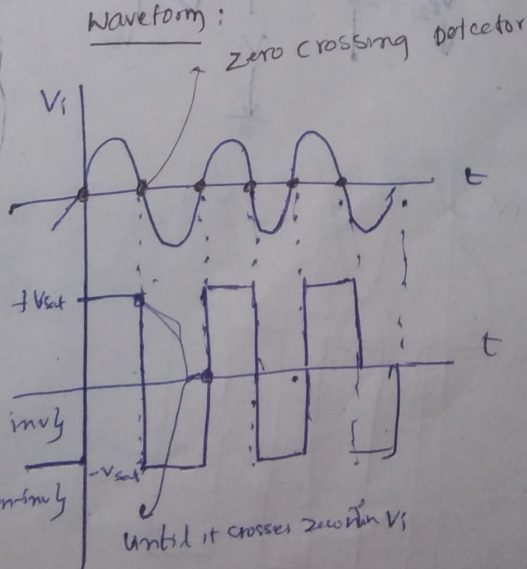 Waveform :
zero crossing Detcetor
Vi
t
+Vsat
t
inv}
-Vsat
until it crosses zero in Vi